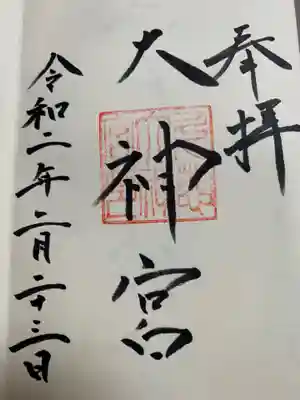 奉拝
大神宮
令和二年二月二十三日